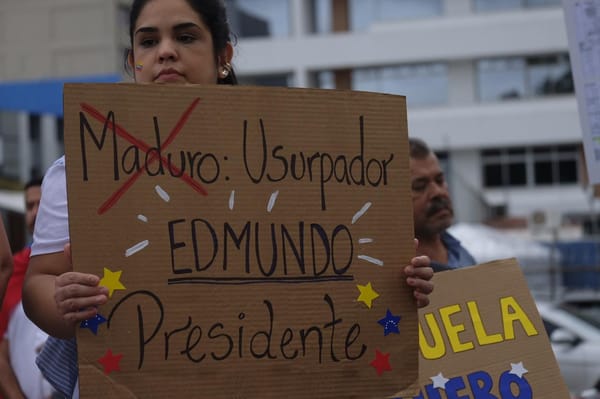 Maduro: Usurpador
EDMUNDO
Presidente
UELA